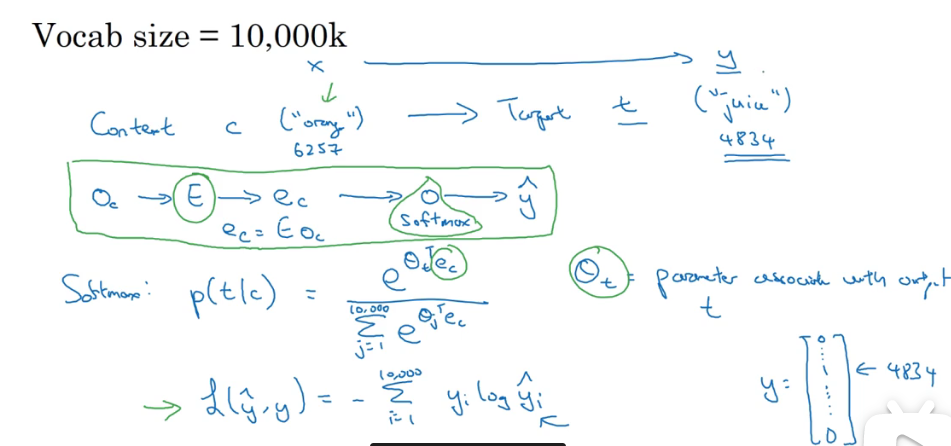 Vocab size = 10,000k
x → y
Context c ("orange") → Target t ("juice")
6257 4834
O_c → E → e_c → o → ŷ
softmax
e_c = E O_c
Softmax: p(t|c) = e^{θ_t^T e_c} / Σ_{j=1}^{10,000} e^{θ_j^T e_c}
θ_t = parameter associated with output t
→ L(ŷ, y) = - Σ_{i=1}^{10,000} y_i log ŷ_i ←
y = [0 ⋮ 1 ⋮ 0] ← 4834